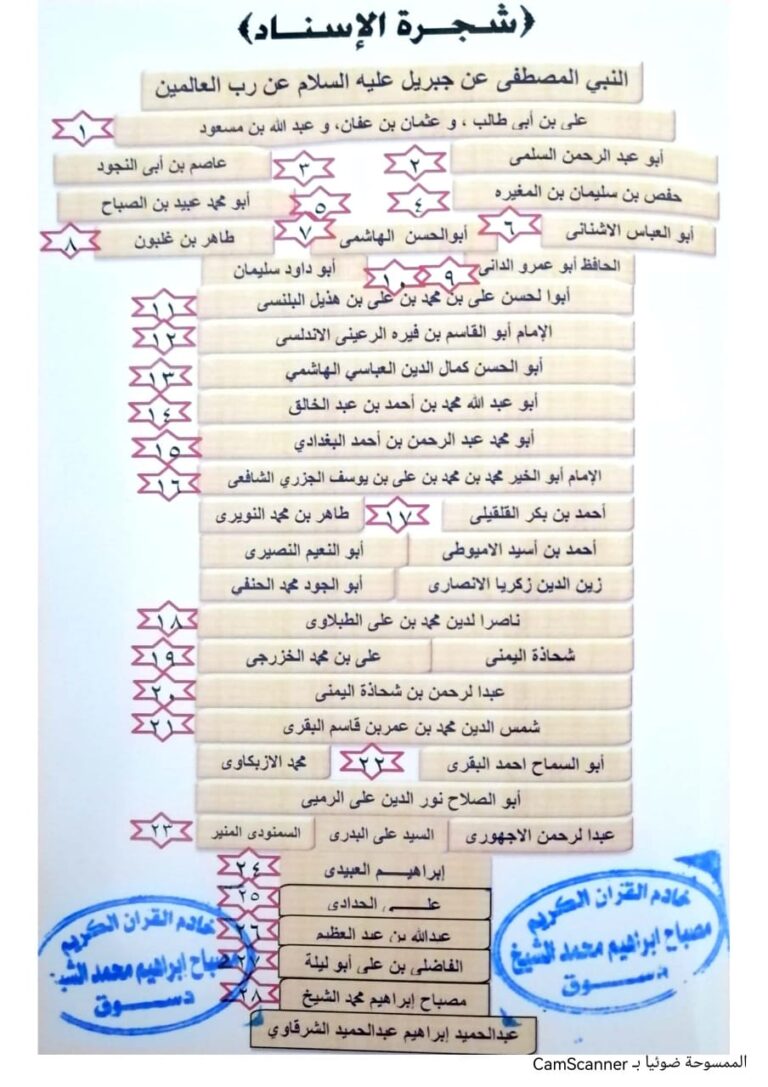 ﴿شجرة الإسناد﴾
النبي المصطفى عن جبريل عليه السلام عن رب العالمين
على بن أبى طالب ، و عثمان بن عفان، و عبد الله بن مسعود ١
أبو عبد الرحمن السلمى ٢ ٣ عاصم بن أبى النجود
حفص بن سليمان بن المغيره ٤ ٥ أبو محمد عبيد بن الصباح
أبو العباس الاشنانى ٦ أبوالحسن الهاشمى ٧ طاهر بن غلبون ٨
الحافظ أبو عمرو الدانى ٩ ١٠ أبو داود سليمان
أبوا لحسن على بن محمد بن على بن هذيل البلنسى ١١
الإمام أبو القاسم بن فيره الرعينى الاندلسى ١٢
أبو الحسن كمال الدين العباسي الهاشمي ١٣
أبو عبد الله محمد بن أحمد بن عبد الخالق ١٤
أبو محمد عبد الرحمن بن أحمد البغدادي ١٥
الإمام أبو الخير محمد بن محمد بن على بن يوسف الجزري الشافعى ١٦
أحمد بن بكر القلقيلى ١٧ طاهر بن محمد النويرى
أحمد بن أسيد الاميوطى أبو النعيم النصيرى
زين الدين زكريا الانصارى أبو الجود محمد الحنفي
ناصرا لدين محمد بن على الطبلاوى ١٨
شحاذة اليمنى على بن محمد الخزرجى ١٩
عبدا لرحمن بن شحاذة اليمنى ٢٠
شمس الدين محمد بن عمربن قاسم البقرى ٢١
أبو السماح احمد البقرى ٢٢ محمد الازبكاوى
أبو الصلاح نور الدين على الرميى
عبدا لرحمن الاجهورى السيد على البدرى السمنودى المنير ٢٣
إبراهيم العبيدى ٢٤
على الحدادى ٢٥
عبدالله بن عبد العظيم ٢٦
الفاضلى بن على أبو ليلة ٢٧
مصباح إبراهيم محمد الشيخ ٢٨
عبدالحميد إبراهيم عبدالحميد الشرقاوي
خادم القران الكريم
مصباح ابراهيم محمد الشيخ
دسوق
خادم القران الكريم
مصباح إبراهيم محمد الشيخ
دسوق
الممسوحة ضوئيا بـ CamScanner